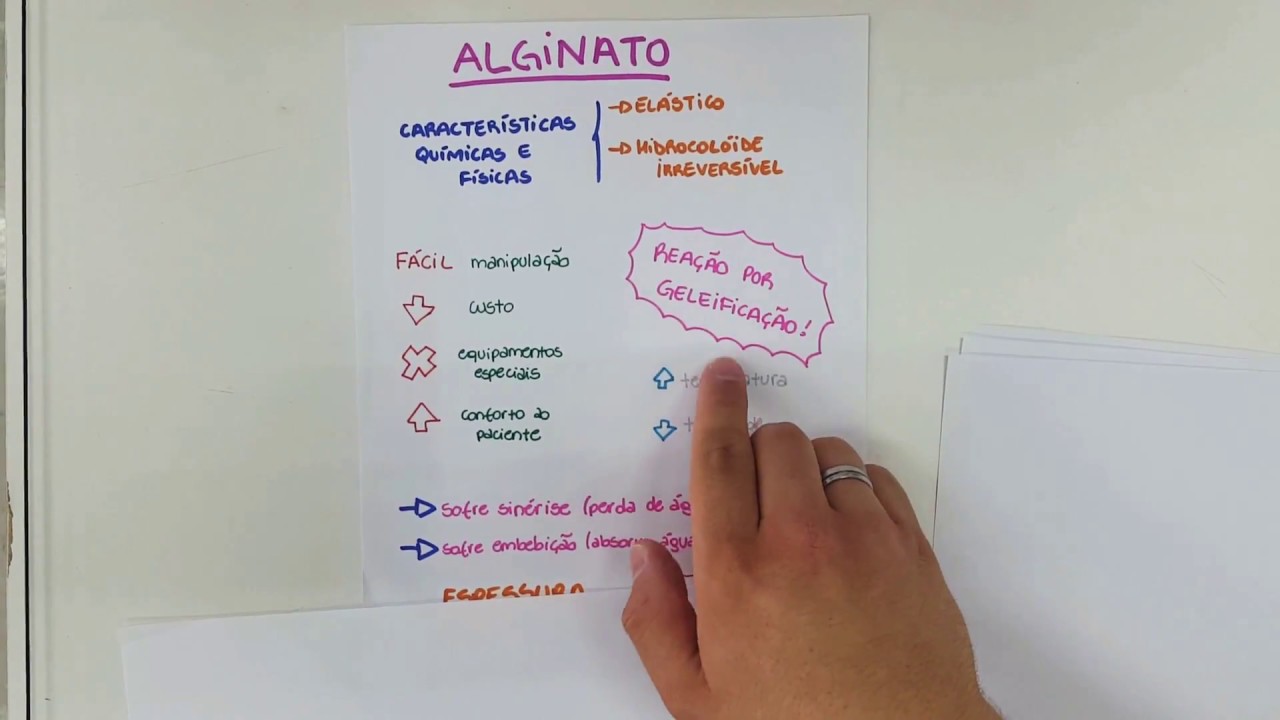 ALGINATO
CARACTERÍSTICAS
QUÍMICAS E
FÍSICAS
ELÁSTICO
HIDROCOLÓIDE
IRREVERSÍVEL
FÁCIL manipulação
custo
equipamentos
especiais
conforto ao
paciente
REAÇÃO POR
GELEIFICAÇÃO!
sofre sinérise (perda de
sofre embebição
ESPESSURA